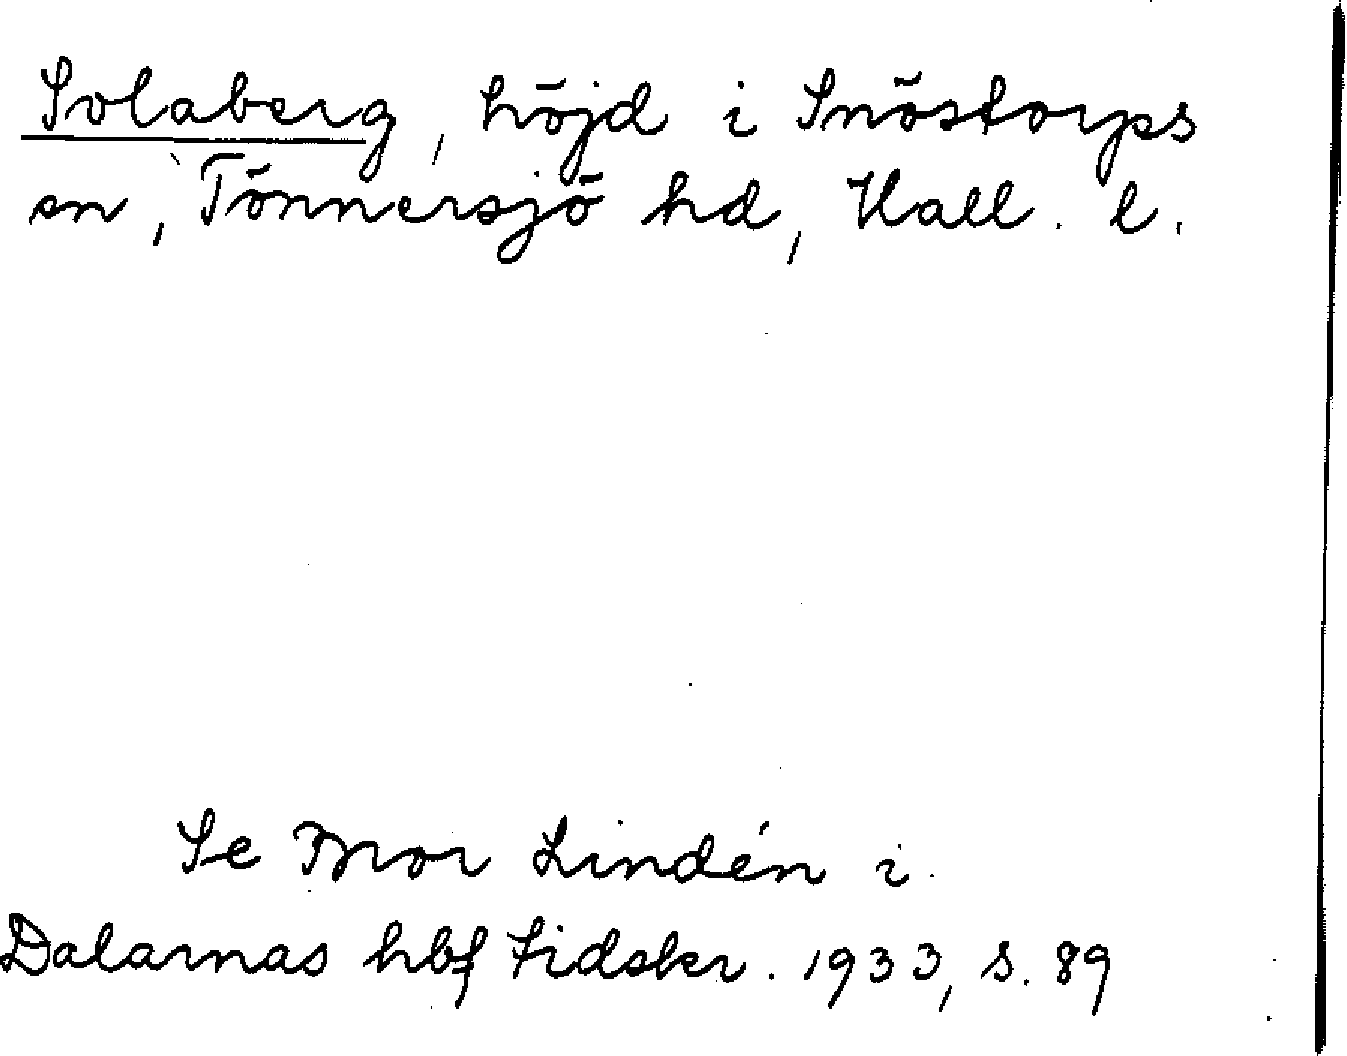 Solaberg, höjd i Snöstorps
sn, Tönnersjö hd, Hall. l.
Se Bror Lindén i
Dalarnas hbf Tidskr. 1933, s. 89